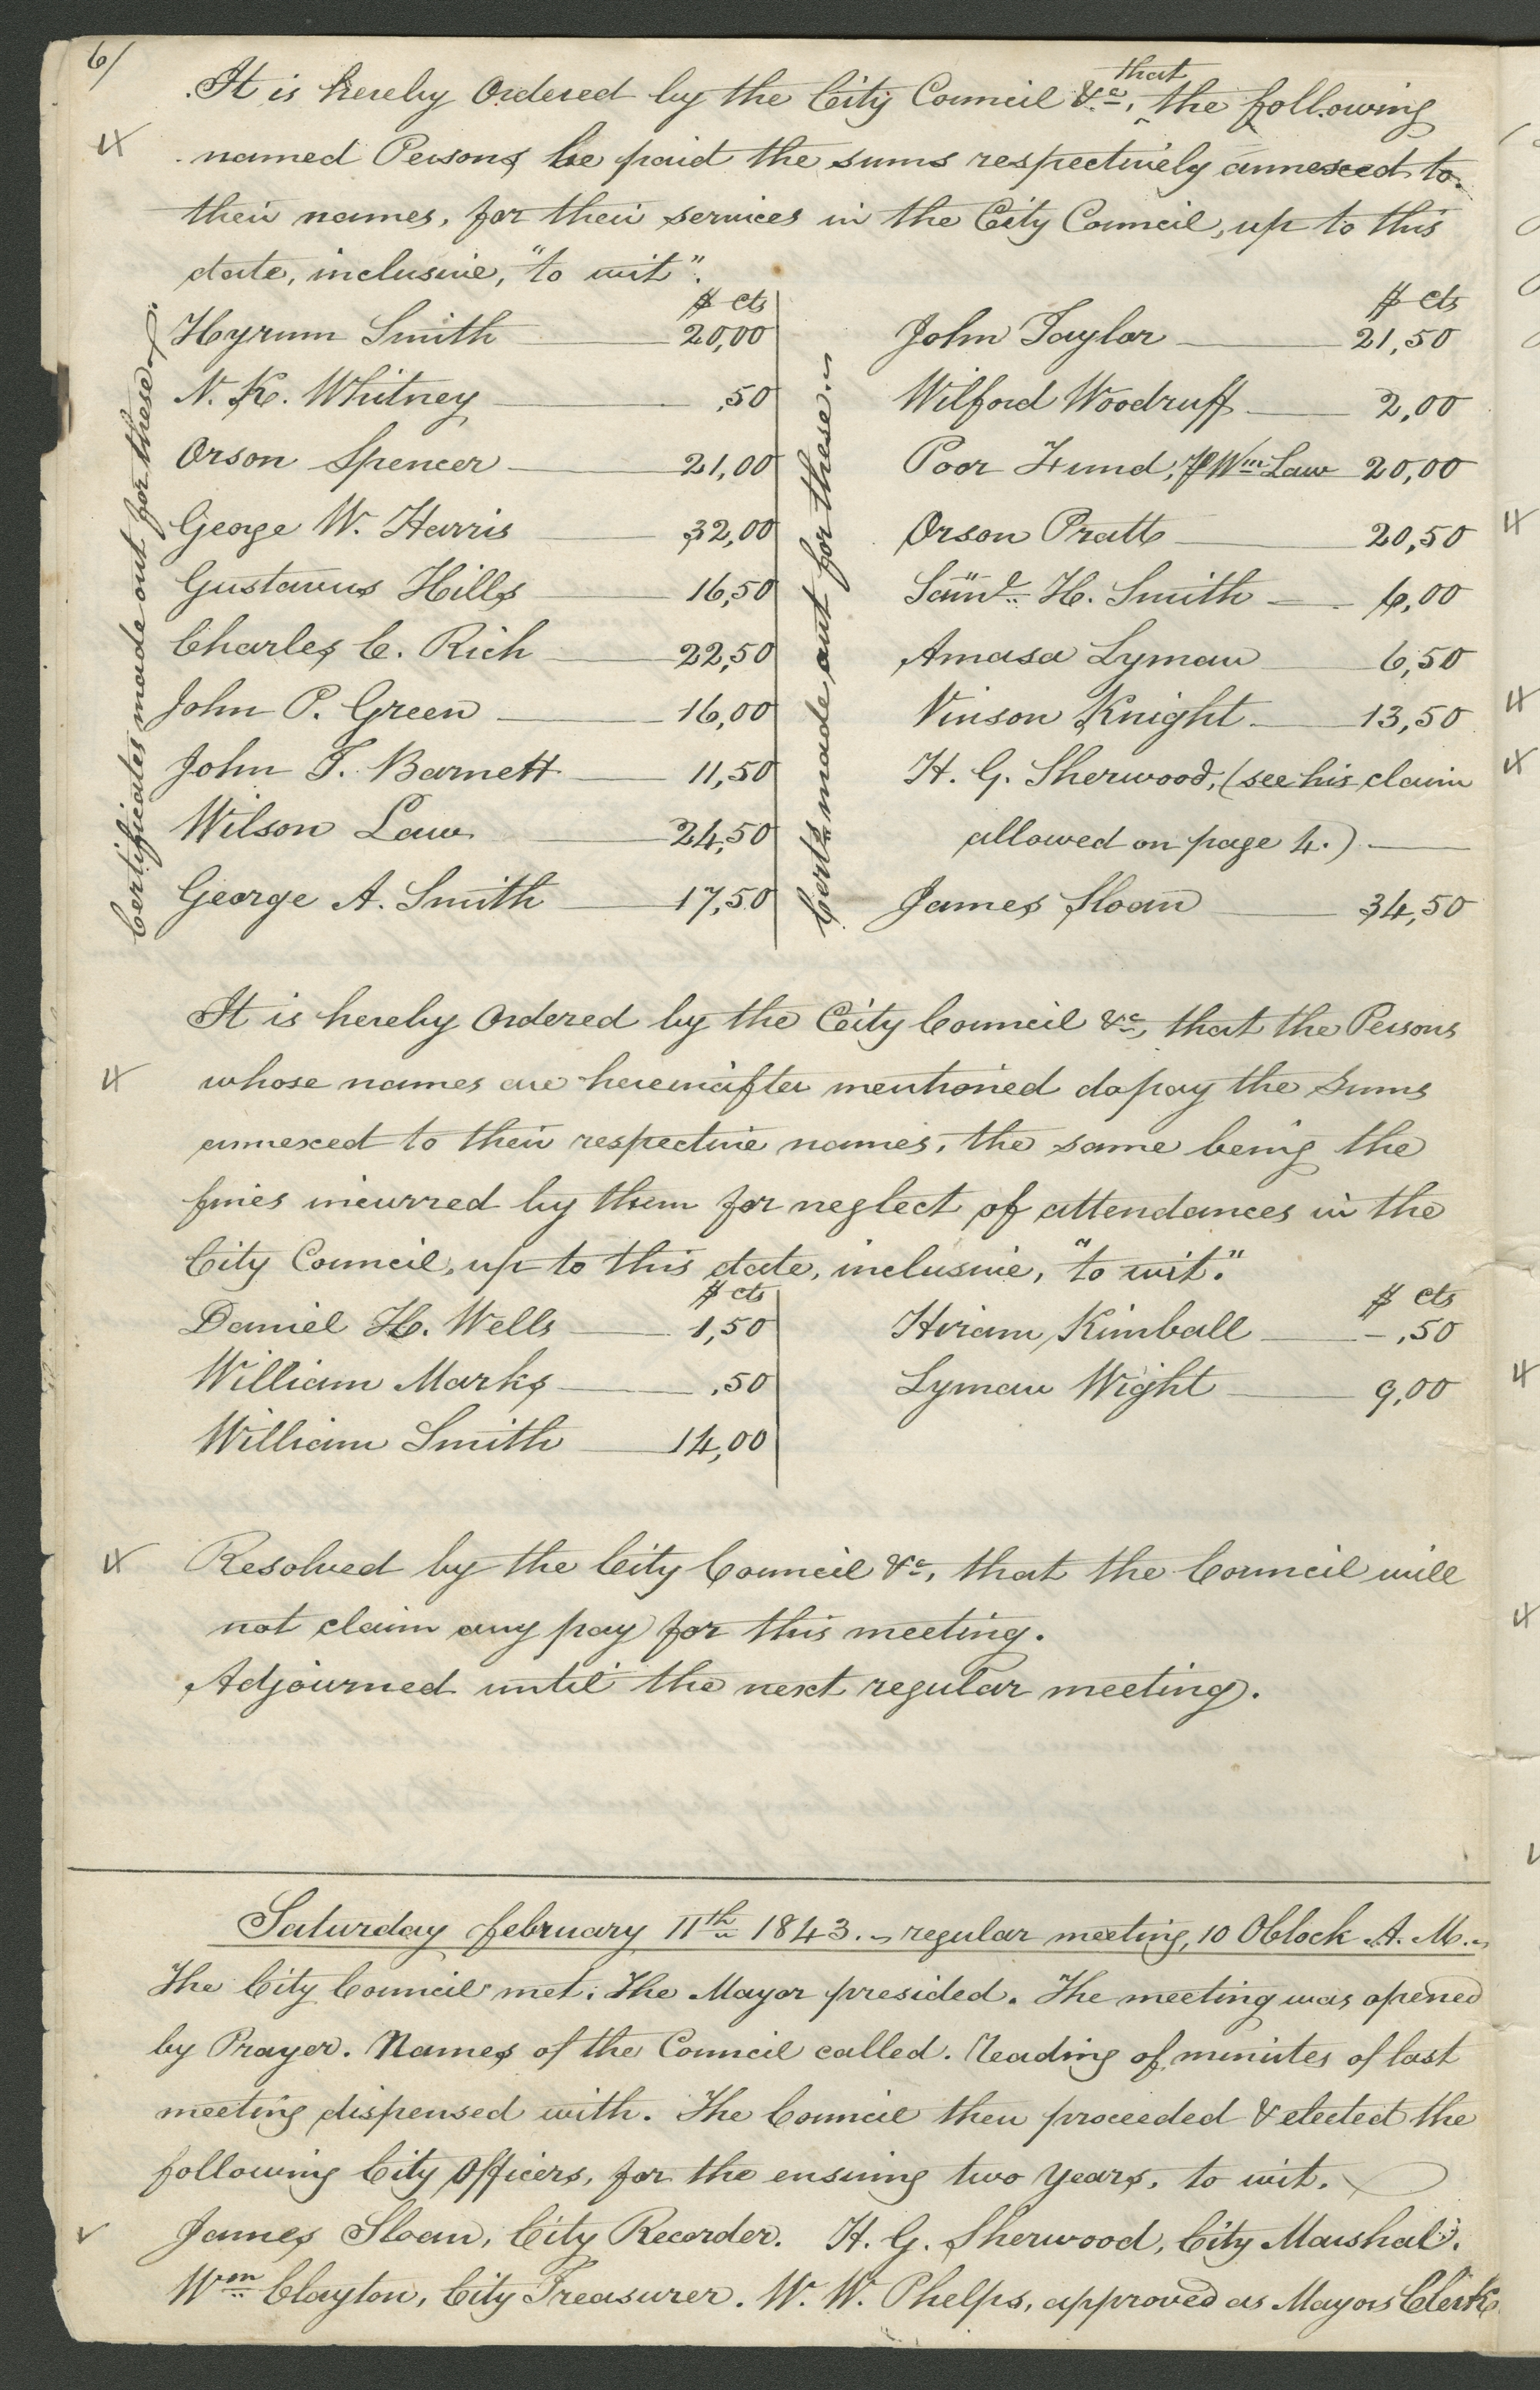 6/
It is hereby Ordered by the City Council &c, that the following
named Persons be paid the sums respectively annexed to
their names, for their services in the City Council, up to this
date, inclusive, "to wit".
Certificates made out for these
$ cts
Hyrum Smith 20,00
N. K. Whitney ,50
Orson Spencer 21,00
George W. Harris 32,00
Gustavus Hills 16,50
Charles C. Rich 22,50
John P. Green 16,00
John T. Barnett 11,50
Wilson Law 24,50
George A. Smith 17,50
Certs made out for these
$ cts
John Taylor 21,50
Wilford Woodruff 2,00
Poor Fund, Wm Law 20,00
Orson Pratt 20,50
Saml H. Smith 6,00
Amasa Lyman 6,50
Vinson Knight 13,50
H. G. Sherwood, (see his claim
allowed on page 4.)
James Sloan 34,50
It is hereby Ordered by the City Council &c, that the Persons
whose names are hereinafter mentioned do pay the Sums
annexed to their respective names, the same being the
fines incurred by them for neglect of attendances in the
City Council, up to this date, inclusive, "to wit."
$ cts
Daniel H. Wells 1,50
William Marks ,50
William Smith 14,00
$ cts
Hiram Kimball – ,50
Lyman Wight 9,00
Resolved by the City Council &c, that the Council will
not claim any pay for this meeting.
Adjourned until the next regular meeting.
Saturday february 11th 1843. regular meeting, 10 OClock A. M.
The City Council met; The Mayor presided. The meeting was opened
by Prayer. Names of the Council called. Reading of minutes of last
meeting dispensed with. The Council then proceeded & elected the
following City Officers, for the ensuing two years, to wit.
James Sloan, City Recorder. H. G. Sherwood, City Marshal.
Wm Clayton, City Treasurer. W. W. Phelps, approved as Mayors Clerk